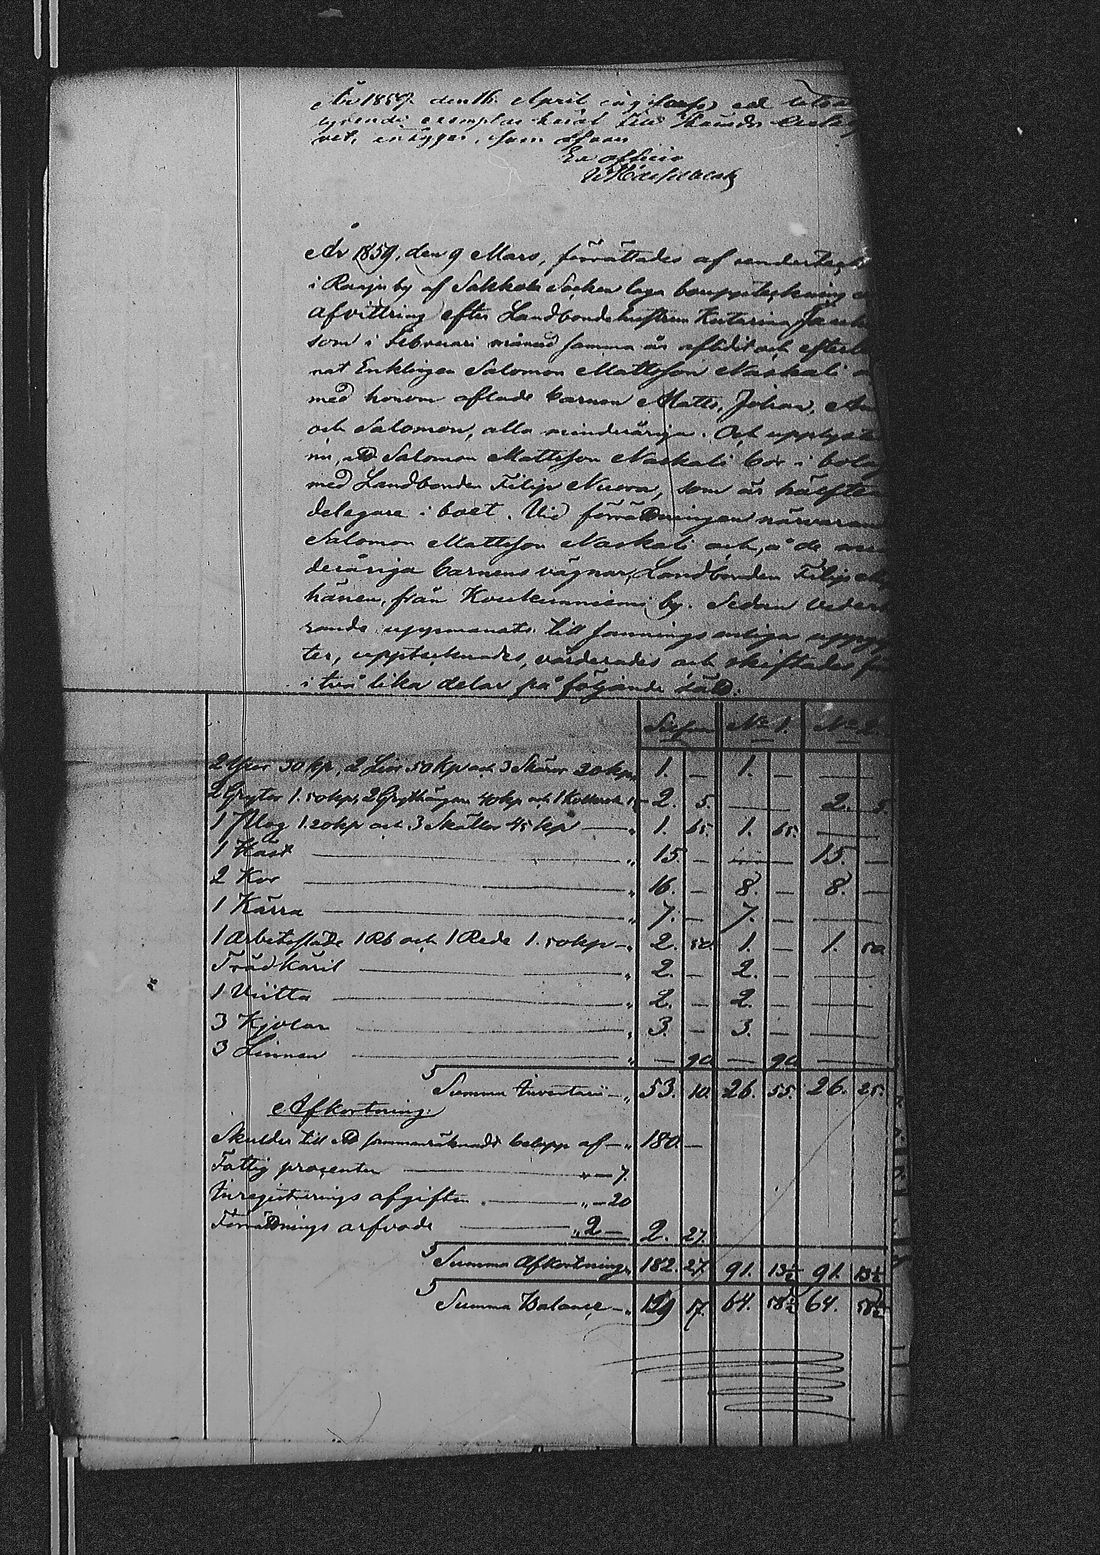 År 1859. den 16. April ingifvet, ed
exemplar häraf till Härads
vet, intygar, som ofvan
Ex officio

År 1859, den 9 Mars, förrättades af
i Raaju by af Sakkola Socken laga bouppteckning
afvittring efter Landbondehustrun Katarina
som i Februari månad samma år aflidit och
nat Enklingen Salomon Mattsson Naskali
med honom aflade barnen Matts, Johan,
och Salomon, alla minderåriga. Och upplyst
nu, att Salomon Mattsson Naskali bor i bolag
med Landbonden Filip Nuora, som är hälften
delegare i boet. Vid förrättningen närvarande
Salomon Mattsson Naskali och, å de min
deråriga barnens vägnar, Landbonden Filip
hänen, från Koukunniemi by. Sedan
uppmanats till sanningsenliga uppgif
ter, upptecknades, värderades och skiftades
i två lika delar på följande sätt.
Summa No 1. No 2.
2 Yxor 30 kp, 2 Liar 50 kp och 3 Skäror 20 kp „ 1. — 1. — —
2 Grytor 1. 50 kp, 2 Grythängen 40 kp och 1 15 „ 2. 5. — 2. 5.
1 Plog 1. 20 kp och 3 Skällor 45 kp — „ 1. 65. 1. 65. —
1 Häst — „ 15. — — 15. —
2 Kor — „ 16. — 8. — 8. —
1 Kärra — „ 7. — 7. — —
1 Arbetssläde 1 Rb och 1 Rede 1. 50 kp — „ 2. 50. 1. — 1. 50.
Trädkäril — „ 2. — 2. — —
1 Viitta — „ 2. — 2. — —
3 Kjolar — „ 3. — 3. — —
3 Linnen — „ — 90 — 90 —
Summa Inventarii — „ 53. 10. 26. 55. 26. 25.
Afkortning.
Skulder till ett sammanräknadt belopp af — „ 180. —
Fattig procenter — „ — 7.
Inregistrerings afgiften — „ — 20
Förrättnings arfvode — „ 2 — 2. 27.
Summa Afkortningen 182. 27. 91. 13½ 91. 13½
Summa Balance — „ 129 17. 64. 58½ 64. 58½